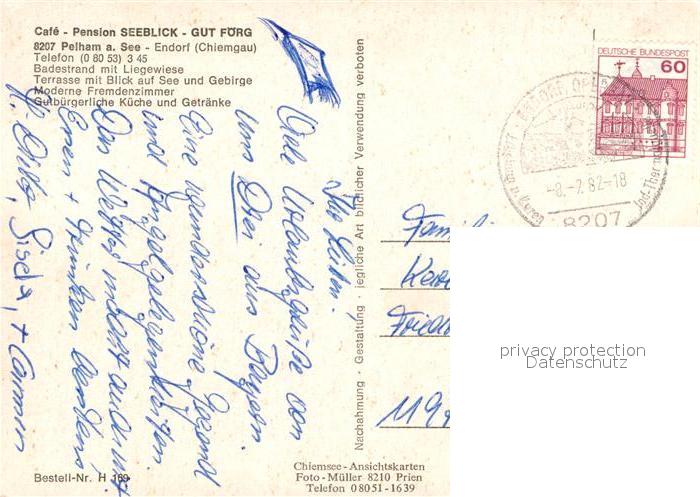 Café - Pension SEEBLICK - GUT FÖRG
8207 Pelham a. See - Endorf (Chiemgau)
Telefon (0 80 53) 3 45
Badestrand mit Liegewiese
Terrasse mit Blick auf See und Gebirge
Moderne Fremdenzimmer
Gutbürgerliche Küche und Getränke
Ihr Lieben!
Viele Urlaubsgrüße von
uns Drei aus Bayern.
Eine wunderschöne Gegend
und Angelgelegenheiten.
Das Wetter macht auch mit.
Essen + trinken
Gisela, + Carmen
Bestell-Nr. H 169
Nachahmung · Gestaltung · jegliche Art bildlicher Verwendung verboten
Chiemsee - Ansichtskarten
Foto - Müller 8210 Prien
Telefon 08051 - 1639
DEUTSCHE BUNDESPOST
60
-8.-7.82-18
8207
Familie
Fried
privacy protection
Datenschutz